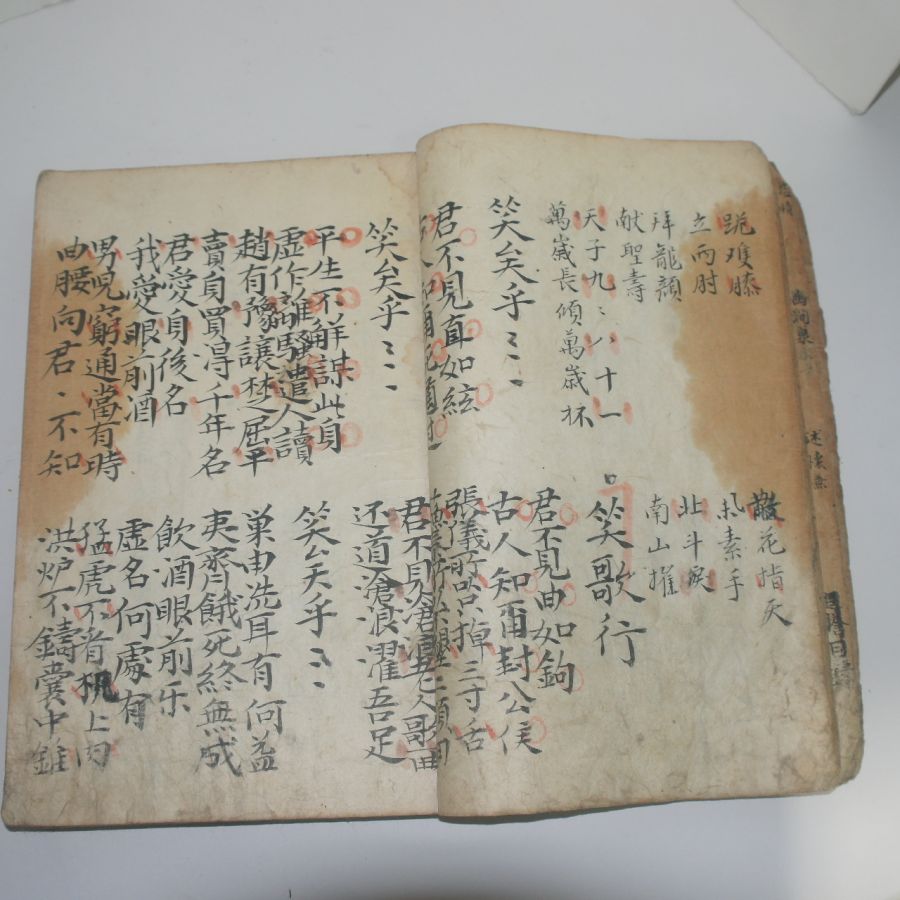 跪难膝
立兩肘
散花指天
扎素手
拜龍顏
献聖壽
北斗戾
南山摧
天子九〻八十一
萬歲長傾萬歲杯
笑歌行
笑矣乎〻〻〻
君不見曲如鉤
古人知爾封公侯
君不見直如絃
張儀所以掉三寸舌
笑矣乎〻〻〻
君不見滄浪老人歌一曲
还道滄浪濯吾足
平生不解謀此身
虛作離騷遣人讀
笑矣乎〻〻〻
趙有豫讓楚屈平
賣身買得千年名
巢由洗耳有何益
夷齊餓死終無成
君愛身後名
我愛眼前酒
飲酒眼前乐
虛名何處有
男兒窮通當有時
曲腰向君〻不知
猛虎不看机上肉
洪炉不鑄囊中錐